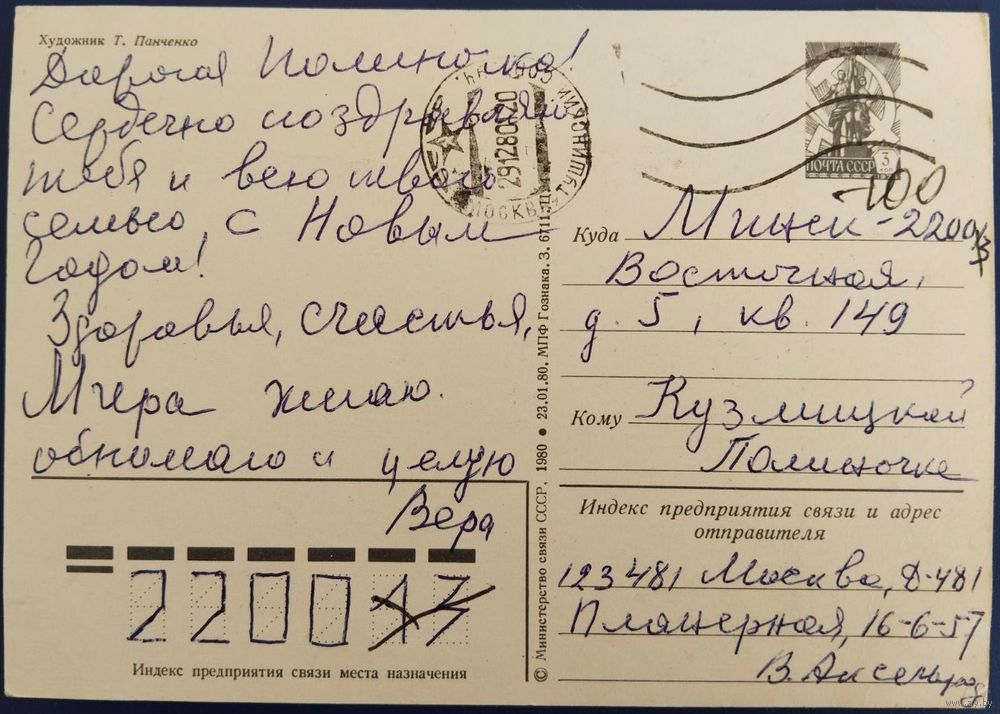 Художник Т. Панченко
Дорогая Полиночка!
Сердечно поздравляю
тебя и всю твою
семью с Новым
Годом!
Здоровья, счастья,
Мира желаю.
обнимаю и целую
Вера
220013
Индекс предприятия связи места назначения
© Министерство связи СССР, 1980 • 23.01.80. МПФ Гознака. З. 6711. Ц
МОСКВА
291280
ПОЧТА СССР
3
коп
-100
Куда Минск-220013
Восточная,
д. 5, кв. 149
Кому Кузмицкой
Полиночке
Индекс предприятия связи и адрес
отправителя
123481 Москва, Д-481
Планерная, 16-6-57
В. Аксельрод